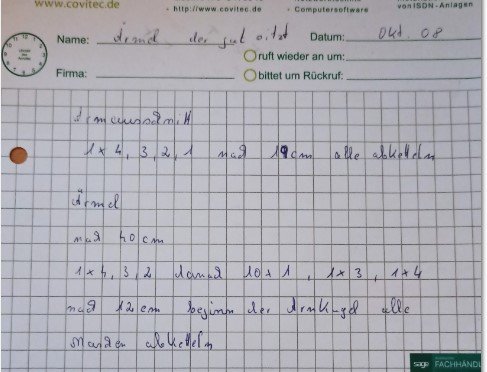 www.covitec.de
- http://www.covitec.de
- Computersoftware
von ISDN-Anlagen
Name: Ärmel der gut sitzt Datum: Okt. 08
ruft wieder an um:
Firma: bittet um Rückruf:
Armausschnitt
1 x 4, 3, 2, 1 nach 19cm alle abketteln
Ärmel
nach 40 cm
1 x 4, 3, 2 danach 10 x 1, 1 x 3, 1 x 4
nach 12 cm beginn der Armkugel alle
Maschen abketteln
sage FACHHÄNDL